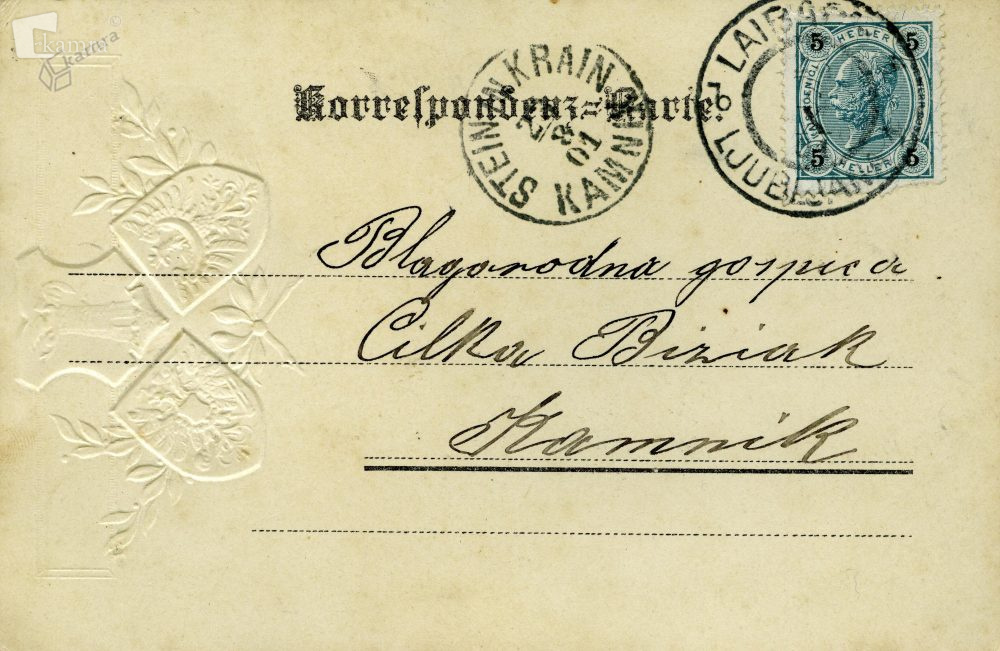 kamra
Korrespondenz-Karte.
STEIN IN KRAIN
2/8 01
KAMNIK
LAIBACH
LJUBLJANA
5 HELLER 5
5 HELLER 5
Blagorodna gospica
Cilka Biziak
Kamnik